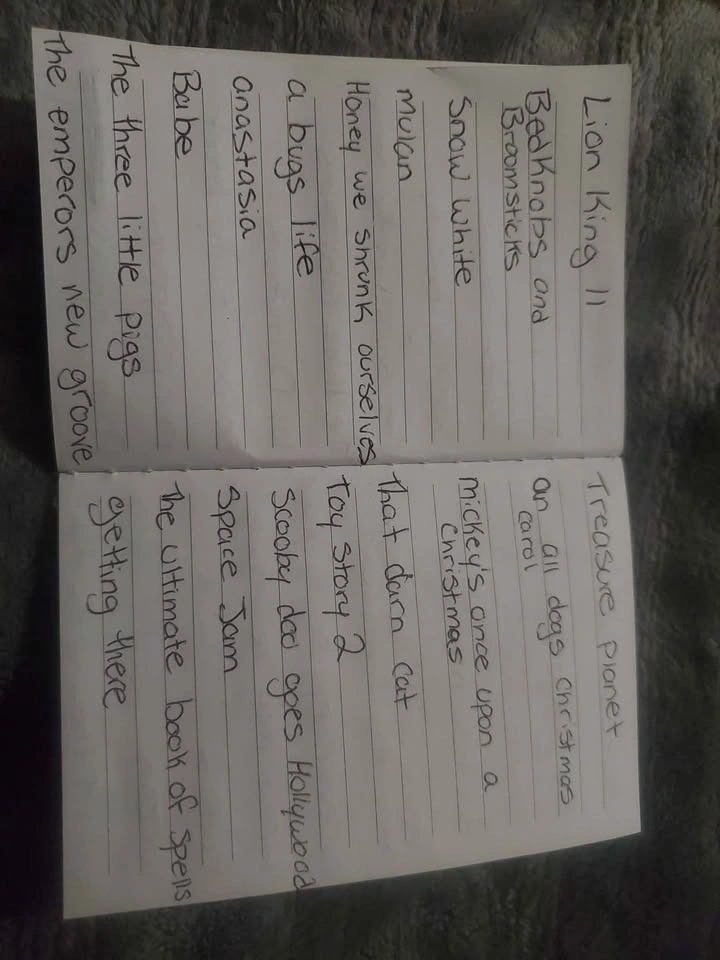 Lion King II
Bedknobs and
Broomsticks
Snow White
mulan
Honey we shrunk ourselves
a bugs life
anastasia
Babe
The three little pigs
The emperors new groove
Treasure planet
an all dogs christmas
carol
mickey's once upon a
christmas
that darn cat
toy story 2
scooby doo goes Hollywood
Space Jam
The ultimate book of spells
getting there